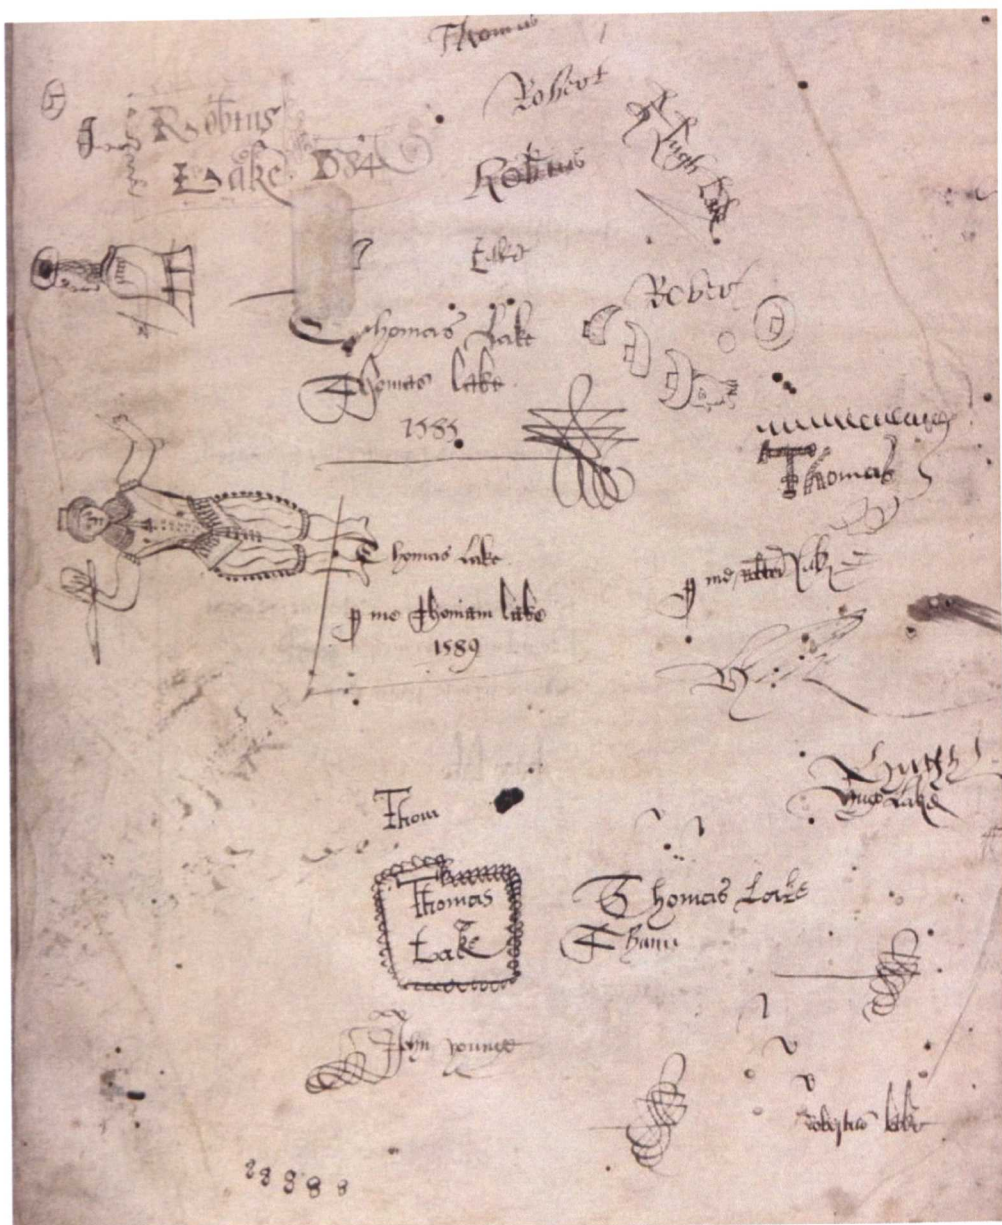 Thomas
Robert
Robtus
Lake 1584
Robtus
Hugh Lake
Lake
Robert
Thomas Lake
Thomas Lake
1585
Thomas
Thomas Lake
p me Thomam Lake
1589
p me
Hugh
Hugo Lake
Thom
Thomas
Lake
Thomas Lake
John younge
Robertus Lake
28888